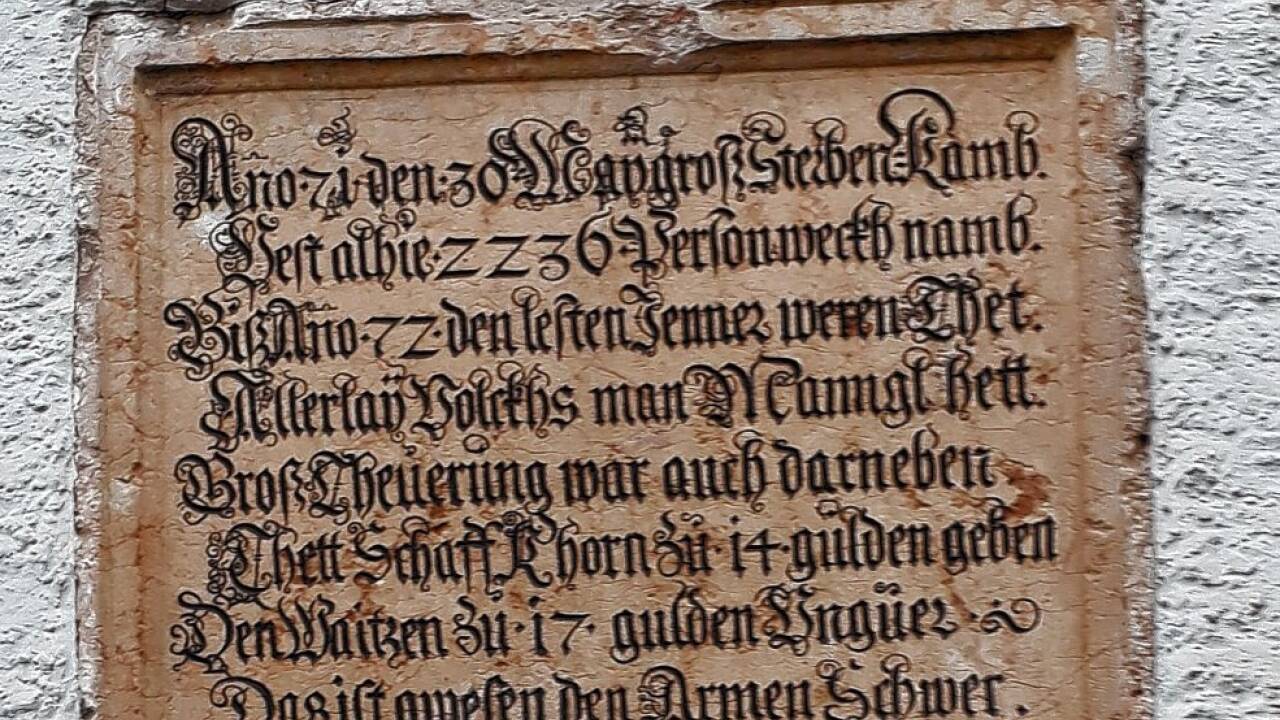 Año·71·den·30 Maÿ groß Sterben kamb.
Vest alhie·2236·Person weckh namb.
Biß Año·72·den lesten Jenner weren Thet.
Allerlaÿ Volckhs man Manngl hett.
Groß Theüerüng war auch darneben
Thett Schaff Khorn zü·14·gülden geben
Den Waitzen zü·17·gulden Vngüer
Das ist gwesen den Armen Schwer.